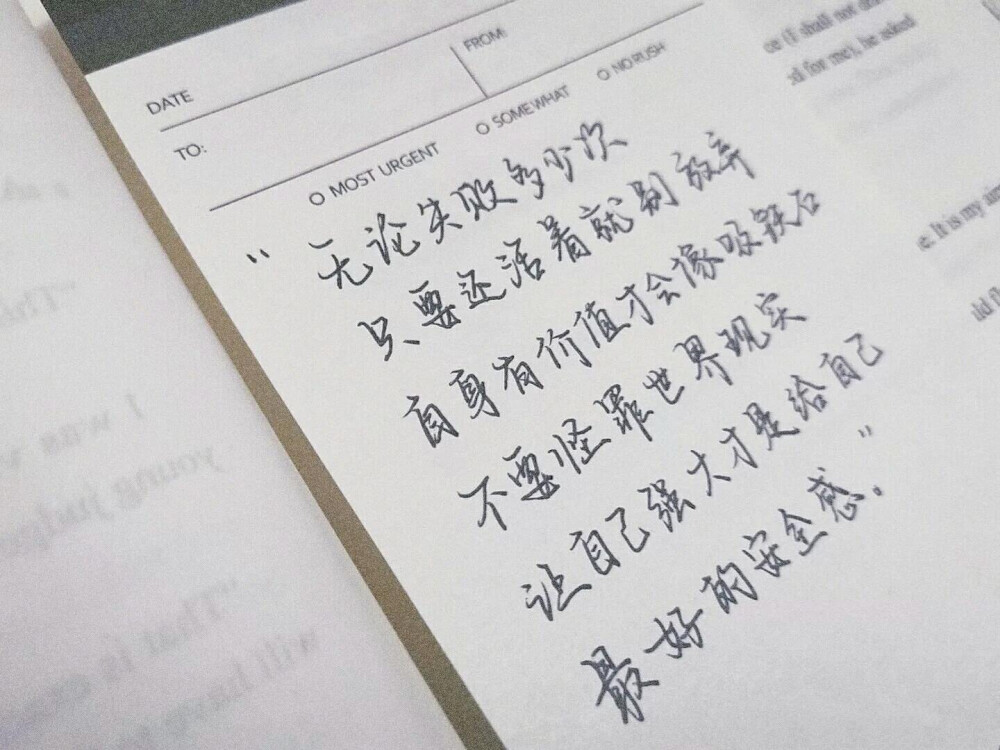 DATE
FROM:
TO:
O MOST URGENT O SOMEWHAT O NO RUSH
“ 无论失败多少次
只要还活着就别放弃
自身有价值才会像吸铁石
不要怪罪世界现实
让自己强大才是给自己
最好的安全感。”
ce (I shall not
for me), he asked
e. It is my
did I
I was
young
"That is
will have